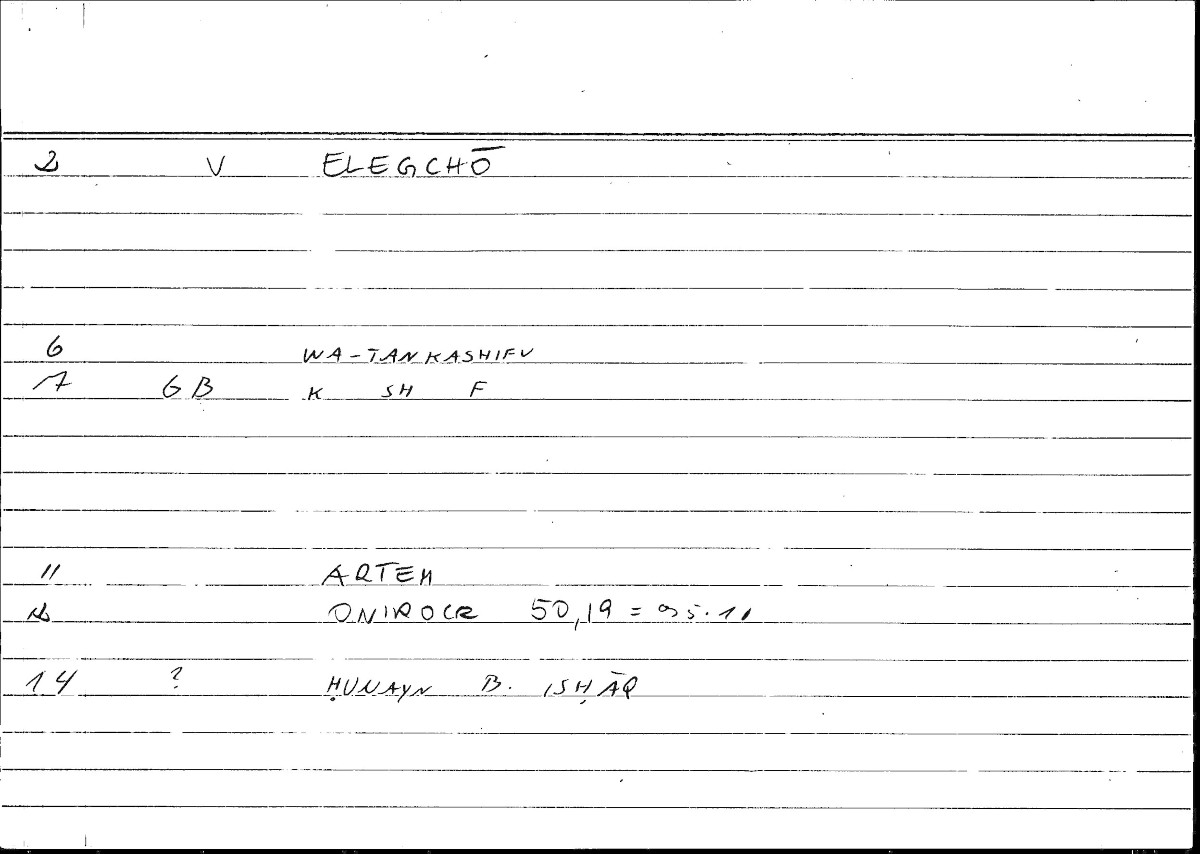 2 V ELEGCHŌ
6 WA-TANKASHIFU
7 GB K SH F
11 ARTEM
12 ONIROCR 50,19 = 95.11
14 ? ḤUNAYN B. ISḤĀQ